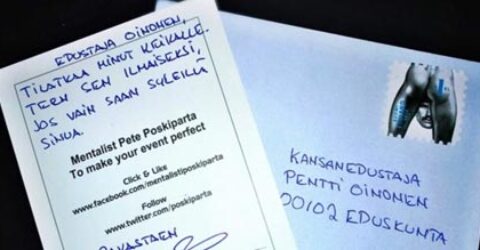 EDUSTAJA OINONEN,
TILATKAA MINUT KEIKALLE.
TEEN SEN ILMAISEKSI,
JOS VAIN SAAN SYLEILLÄ
SINUA.
Mentalist Pete Poskiparta
To make your event perfect
Click & Like
www.facebook.com/mentalistiposkiparta
Follow
www.twitter.com/poskiparta
RAKASTAEN
KANSANEDUSTAJA
PENTTI OINONEN
00102 EDUSKUNTA